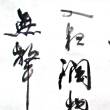 潤物
無聲